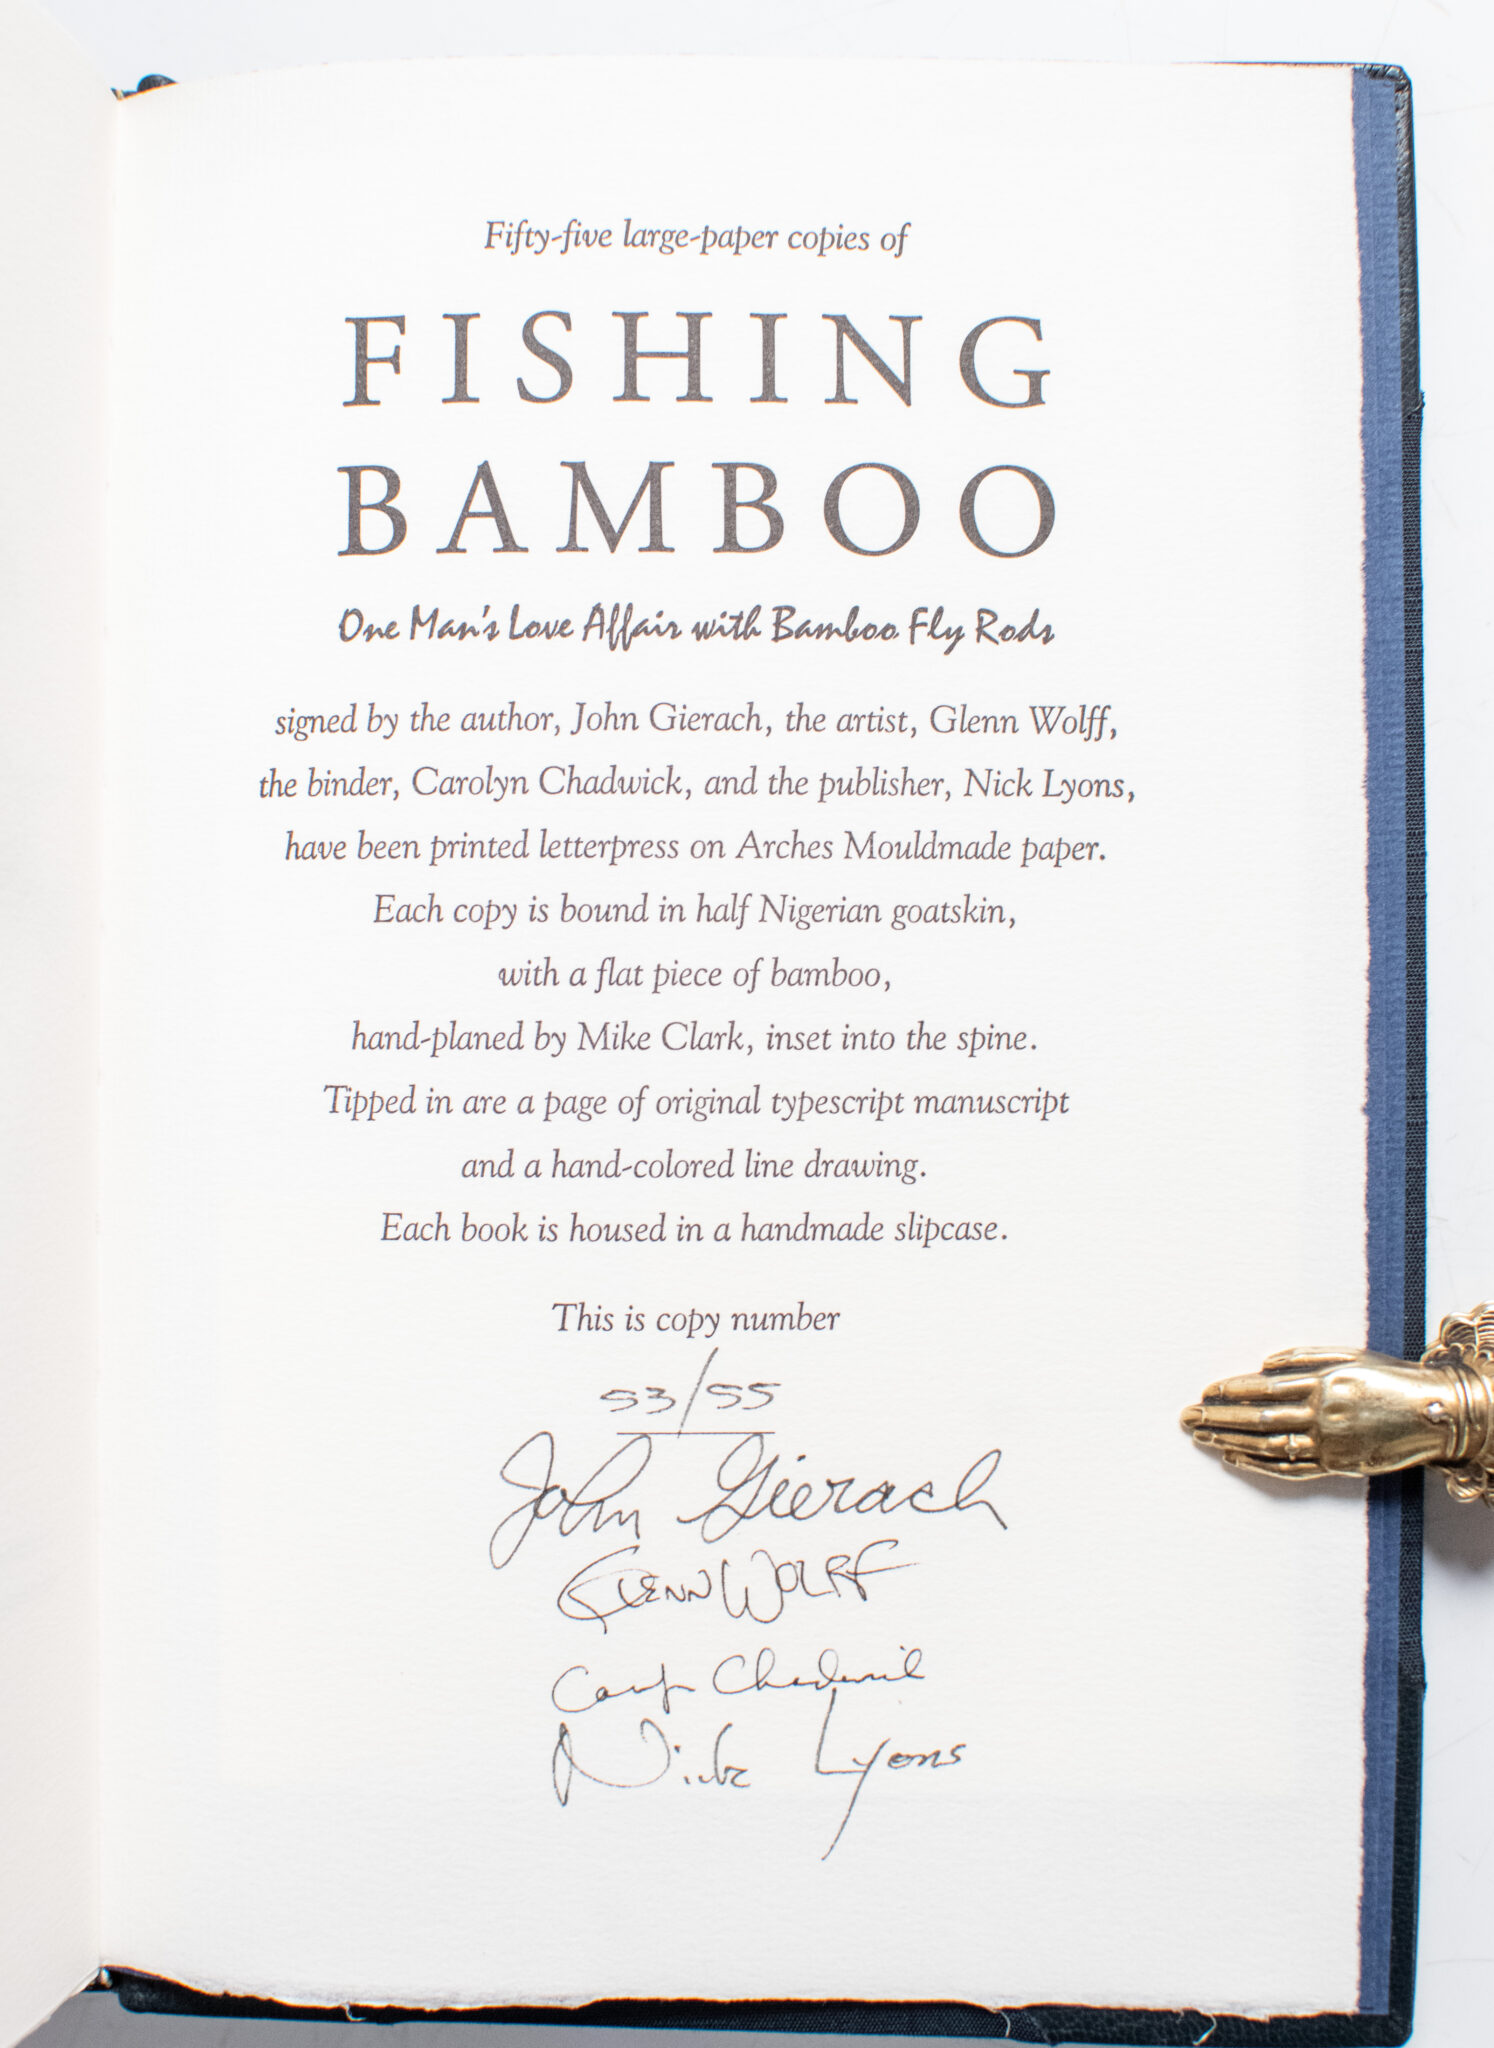 Fifty-five large-paper copies of
FISHING
BAMBOO
One Man's Love Affair with Bamboo Fly Rods
signed by the author, John Gierach, the artist, Glenn Wolff,
the binder, Carolyn Chadwick, and the publisher, Nick Lyons,
have been printed letterpress on Arches Mouldmade paper.
Each copy is bound in half Nigerian goatskin,
with a flat piece of bamboo,
hand-planed by Mike Clark, inset into the spine.
Tipped in are a page of original typescript manuscript
and a hand-colored line drawing.
Each book is housed in a handmade slipcase.
This is copy number
53/55
John Gierach
Glenn Wolff
Carolyn Chadwick
Nick Lyons